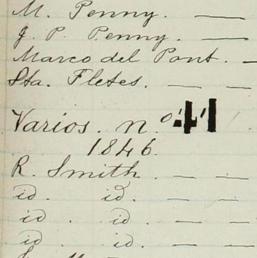 M. Penny. —
J. P. Penny. —
Marco del Pont. —
Sta. Fletes. —
Varios. nº 41
1846.
R. Smith. — —
id. id. — —
id. id. — —
id. id. — —